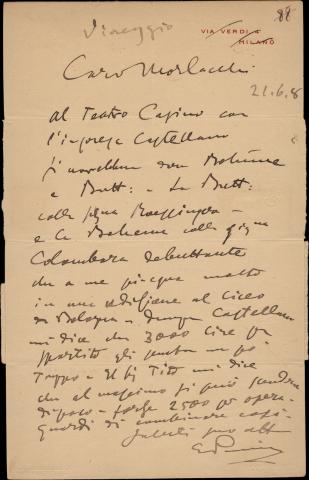 88
Viareggio
VIA VERDI 4
MILANO
Caro Morlacchi
21.6.8
al Teatro Casino con
l'impresa Castellano
si vorrebbe dare Bohème
e Butt: - La Butt:
colla sigra
e la Boheme colla sigra
Colombara debuttante
che a me piacque molto
in una audizione al Liceo
di Bologna - dunque Castellano
mi dice che 3000 lire per
spartito gli sembra un pò
troppo - il Sig Tito mi dice
che al massimo si può scendere
di poco - forse 2500 per opera -
guardi di combinare
saluti suo aff
GPuccini